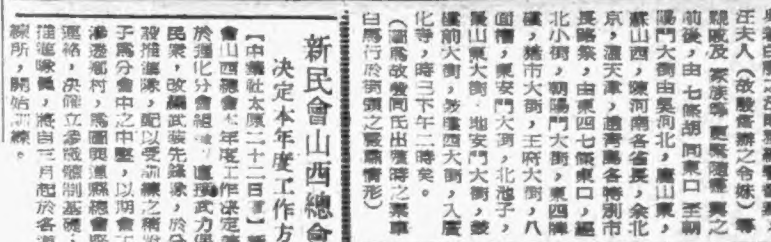 汪夫人（故殷督辦之令妹）等
親戚及家族等　隨靈輿之
前後，由七條胡同東口至朝
陽門大街由吳河北，唐山東，
蘇山西，陳河南各省長，余北
京，溫天津，趙青島各特別市
長路祭，由東四七條東口，經
北小街，朝陽門大街，東四牌
樓，豬市大街，王府大街，八
面槽，東安門大街，北池子，
景山東大街，地安門大街，鼓
樓前大街，鼓樓西大街，入廣
化寺，時已下午二時矣。
（圖爲故殷同氏出殯時之靈車
白馬行於街頭之發靈情形）
新民會山西總會
決定本年度工作方
【中華社太原二十二日電】新
會山西總會本年度工作決定
於強化分會組織，直接武力保
民衆，改編武裝先鋒隊，於分
設推進隊，配以受訓練之
子爲分會中之中堅，以期會工
滲透鄉村，爲圖與道縣總會密
連絡，決確立參戰體制基礎，
推進隊員，將自三月起於各道
練所，開始訓練。